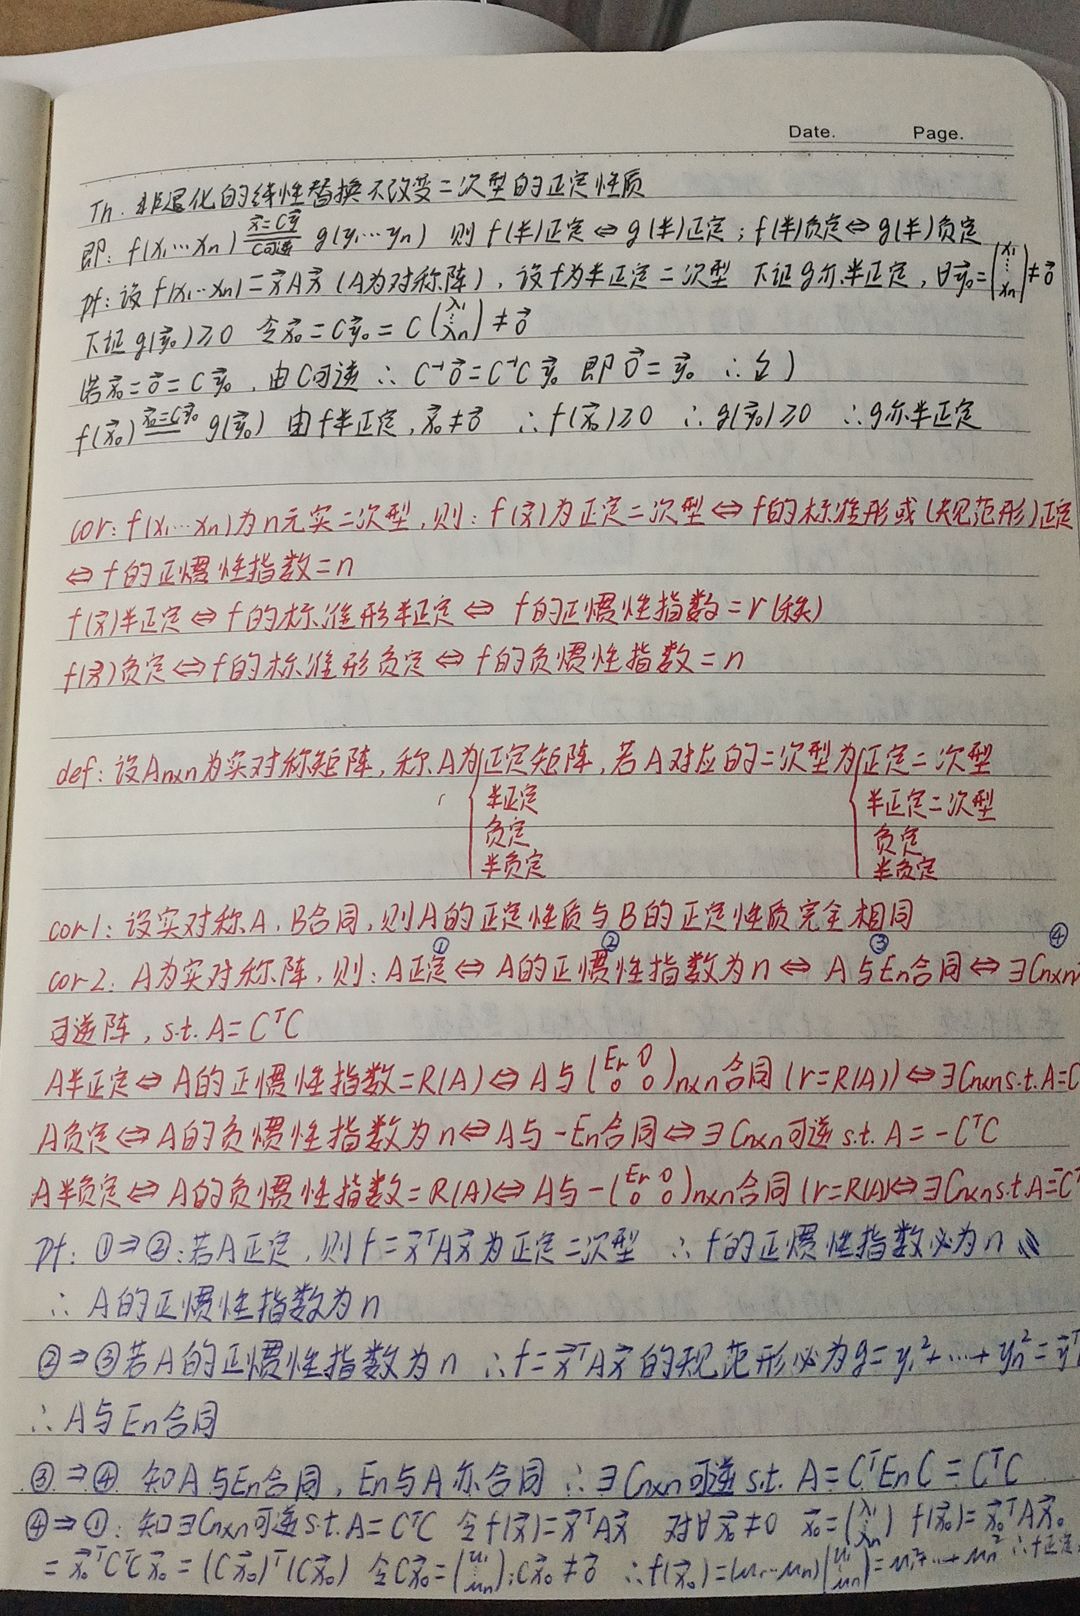 Date. Page.
Th. 非退化的线性替换不改变二次型的正定性质
即: f(x₁…xₙ) =(x⃗=Cy⃗, C可逆)= g(y₁…yₙ) 则 f(半)正定⇔g(半)正定; f(半)负定⇔g(半)负定
pf: 设 f(x₁…xₙ)=x⃗Ax⃗ (A为对称阵), 设f为半正定二次型 下证g亦半正定, ∀y⃗₀=(x₁ ⋮ xₙ)≠0⃗
下证g(y⃗₀)≥0 令x⃗₀=Cy⃗₀=C(λ₁ ⋮ λₙ)≠0⃗
(若x⃗₀=0⃗=Cy⃗₀, 由C可逆 ∴ C⁻¹0⃗=C⁻¹Cy⃗₀ 即 0⃗=y⃗₀ ∴ )
f(x⃗₀) =(x⃗₀=Cy⃗₀)= g(y⃗₀) 由f半正定, x⃗₀≠0⃗ ∴f(x⃗₀)≥0 ∴g(y⃗₀)≥0 ∴g亦半正定
cor: f(x₁…xₙ)为n元实二次型, 则: f(x⃗)为正定二次型⇔f的标准形或(规范形)正定
⇔f的正惯性指数=n
f(x⃗)半正定⇔f的标准形半正定⇔ f的正惯性指数=r(秩)
f(x⃗)负定⇔f的标准形负定⇔f的负惯性指数=n
def: 设Aₙₓₙ为实对称矩阵, 称A为{正定矩阵, 若A对应的二次型为{正定二次型
半正定 半正定二次型
负定 负定
半负定 半负定
cor1: 设实对称A, B合同, 则A的正定性质与B的正定性质完全相同
① ② ③ ④
cor2: A为实对称阵, 则: A正定⇔A的正惯性指数为n⇔ A与Eₙ合同⇔∃Cₙₓₙ
可逆阵, s.t. A=CᵀC
A半正定⇔A的正惯性指数=R(A)⇔A与(Eᵣ 0 0 0)ₙₓₙ合同(r=R(A))⇔∃Cₙₓₙs.t.A=C
A负定⇔A的负惯性指数为n⇔A与-Eₙ合同⇔∃Cₙₓₙ可逆 s.t. A=-CᵀC
A半负定⇔A的负惯性指数=R(A)⇔A与-(Eᵣ 0 0 0)ₙₓₙ合同(r=R(A)⇔∃Cₙₓₙs.t.A=-Cᵀ
pf: ①⇒②: 若A正定, 则f=x⃗ᵀAx⃗为正定二次型 ∴f的正惯性指数必为n
∴ A的正惯性指数为n
②⇒③若A的正惯性指数为n ∴f=x⃗ᵀAx⃗的规范形必为g=y₁²+…+yₙ²=y⃗ᵀ
∴A与Eₙ合同
③⇒④ 知A与Eₙ合同, Eₙ与A亦合同 ∴∃Cₙₓₙ可逆 s.t. A=CᵀEₙC=CᵀC
④⇒①: 知∃Cₙₓₙ可逆s.t.A=CᵀC 令f(x⃗)=x⃗ᵀAx⃗ 对∀x⃗₀≠0 x⃗₀=(λ₁ ⋮ λₙ) f(x⃗₀)=x⃗₀ᵀAx⃗₀
=x⃗₀ᵀCᵀCx⃗₀=(Cx⃗₀)ᵀ(Cx⃗₀) 令Cx⃗₀=(μ₁ ⋮ μₙ); Cx⃗₀≠0⃗ ∴f(x⃗₀)=(μ₁…μₙ)(μ₁ ⋮ μₙ)=μ₁²+…+μₙ² ∴f正定